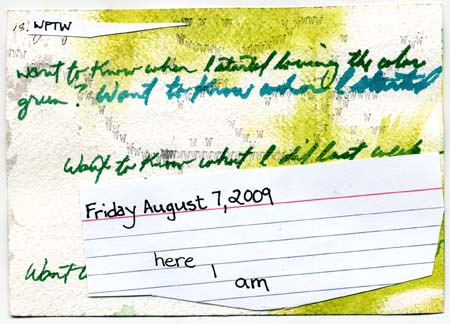 18. WPTW
want to know when I started loving the color
green? Want to know when I started
Want to know what I did last week
Friday August 7, 2009
here I
am
Want